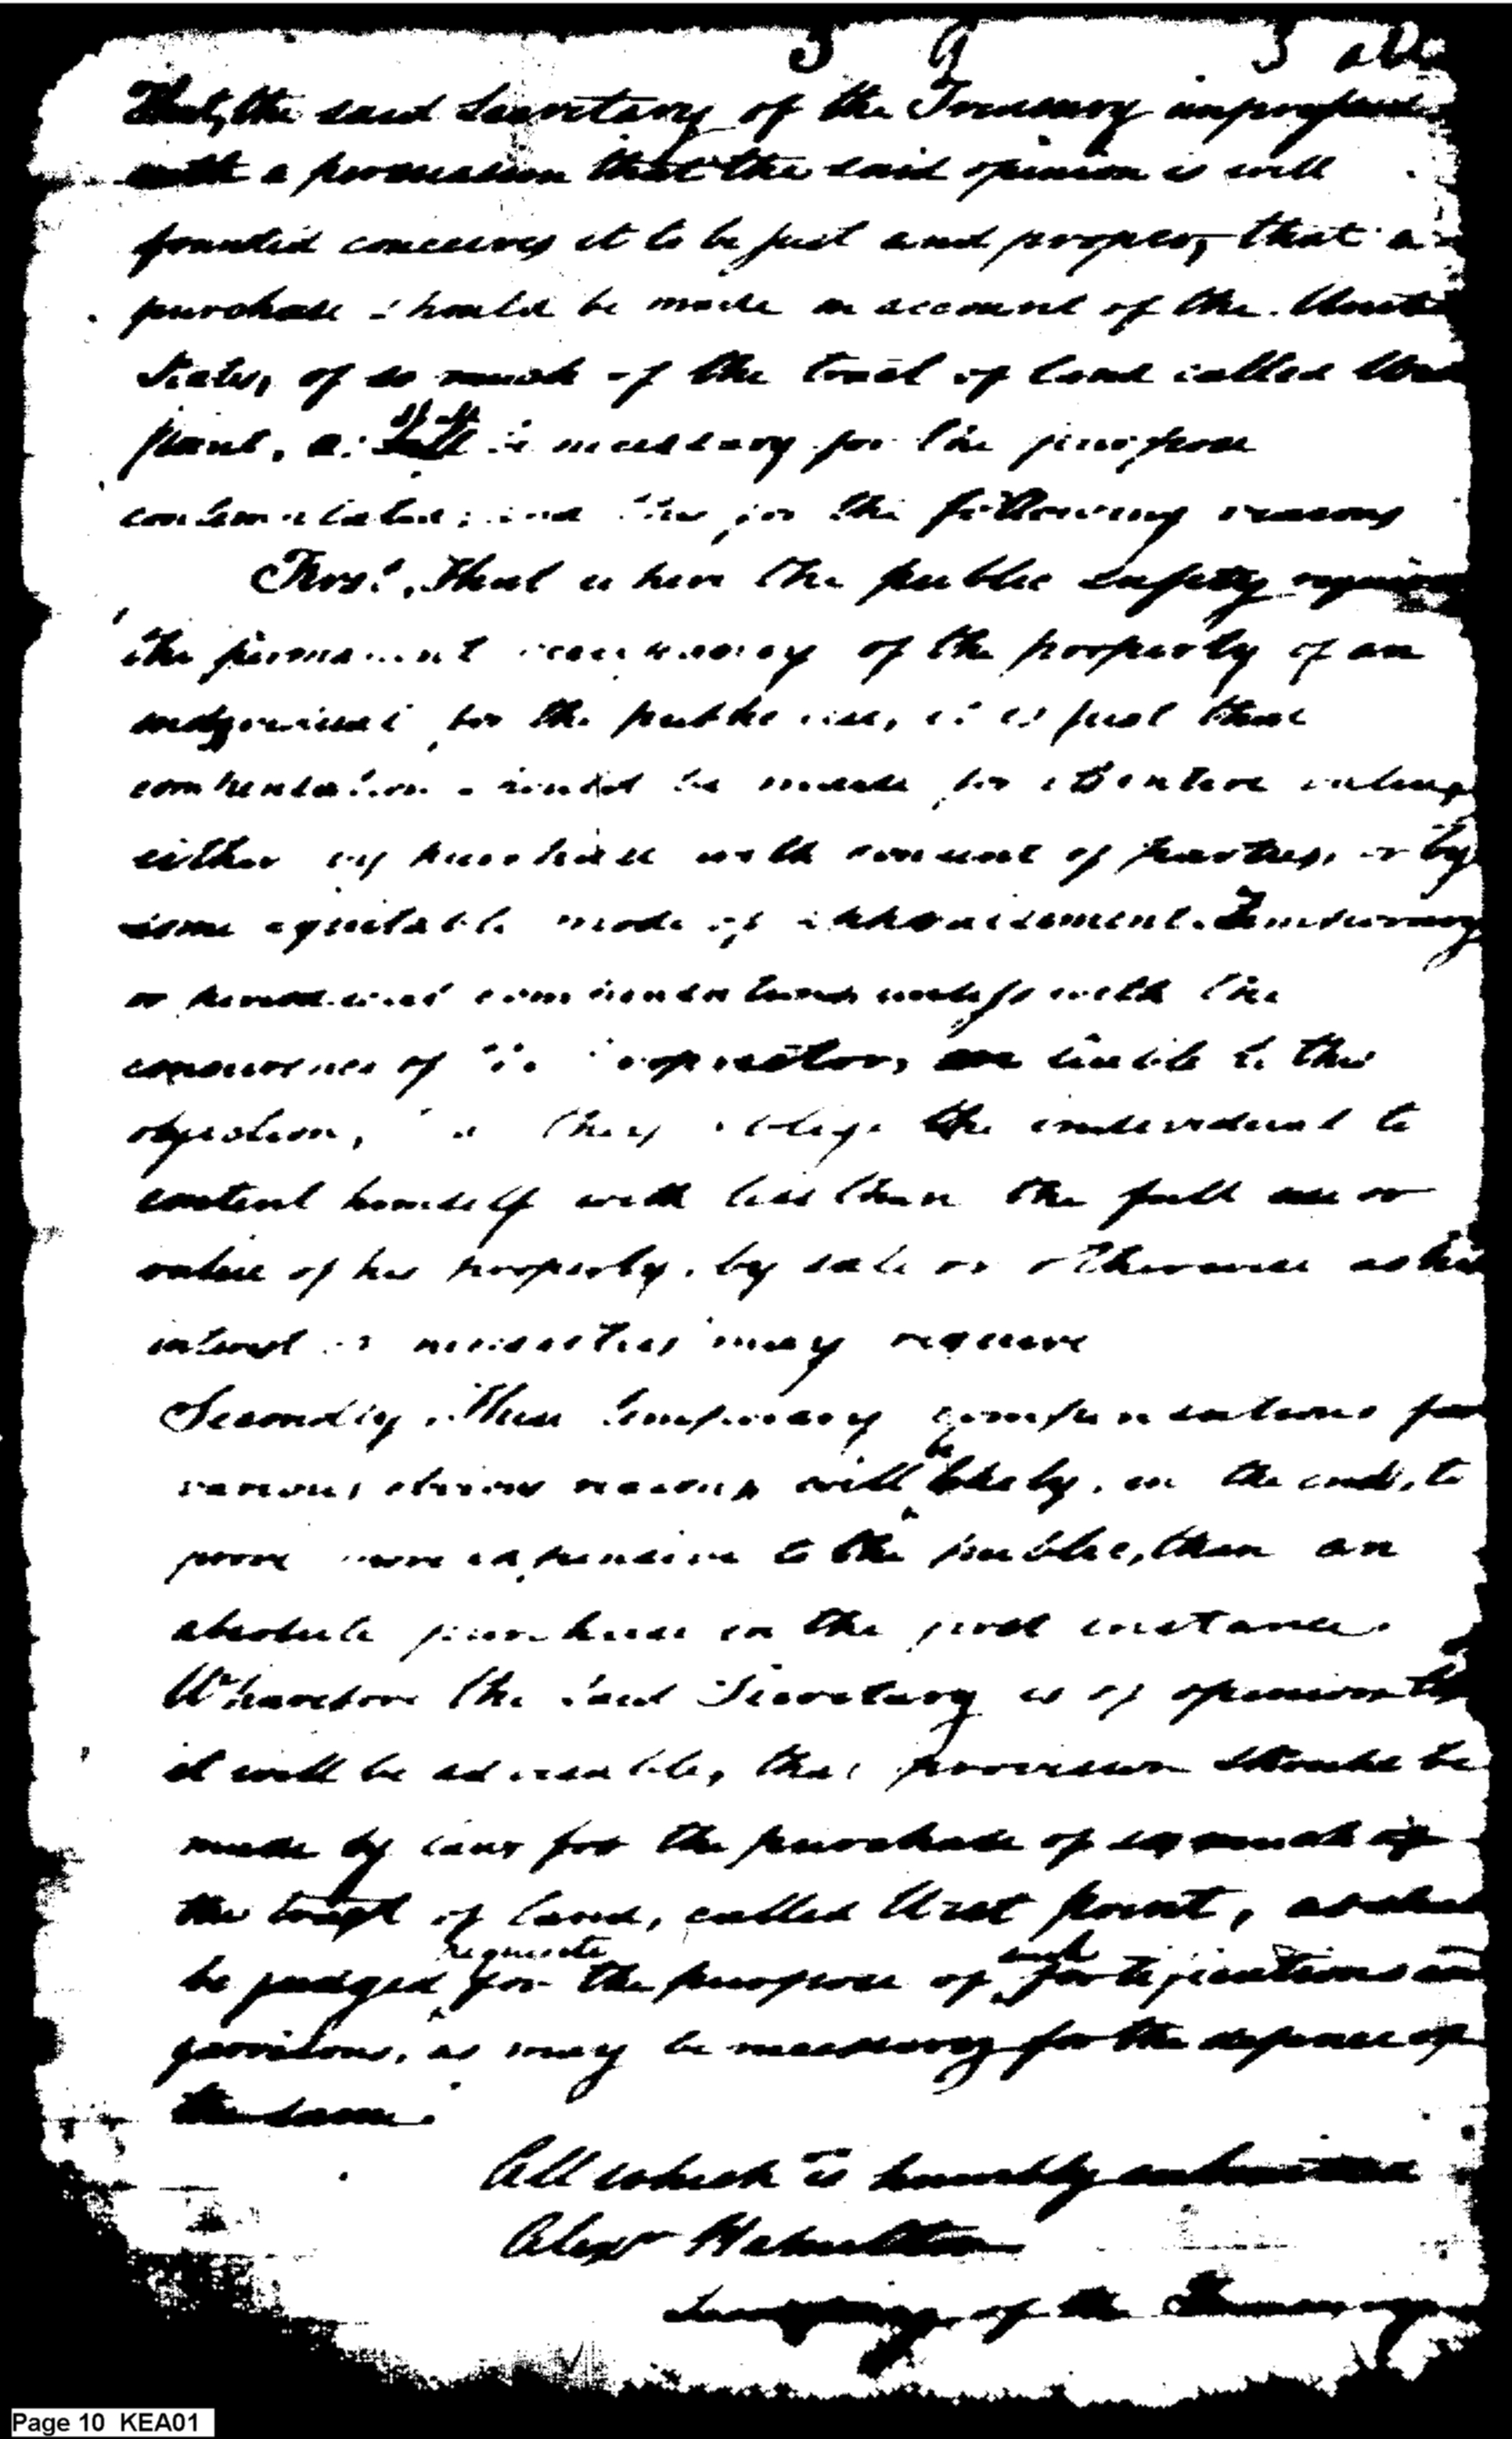 That, the said Secretary of the Treasury impressed
with a persuasion that the said opinion is well
founded conceives it to be just and proper, that a
purchase should be made on account of the United
States, of so much of the tract of land called West
point, as is necessary for the purpose
contemplated; and this for the following reasons
First, That where the public safety requires
the permanent occupancy of the property of an
individual for the public use, it is just that
compensation should be made for its entire value,
either by purchase with consent of parties, or by
some equitable mode of appraisement. Temporary
or periodical compensations unless with the
concurrence of the proprietor, are liable to this
objection, they oblige the individual to
content himself with less than the full use or
value of his property, by sale or otherwise as his
interest or necessities may require
Secondly, These temporary compensations for
various obvious reasons will be likely, in the end, to
prove more expensive to the public, than an
absolute purchase in the first instance.
Wherefore the said Secretary is of opinion that
it will be adviseable, that provision should be
made by law for the purchase of so much of
the tract of land, called West point, as shall
be judged requisite for the purpose of such fortifications and
garrisons, as may be necessary for the defence of
the same.
All which is humbly submitted
Alexr Hamilton
Secretary of the Treasury
Page 10 KEA01